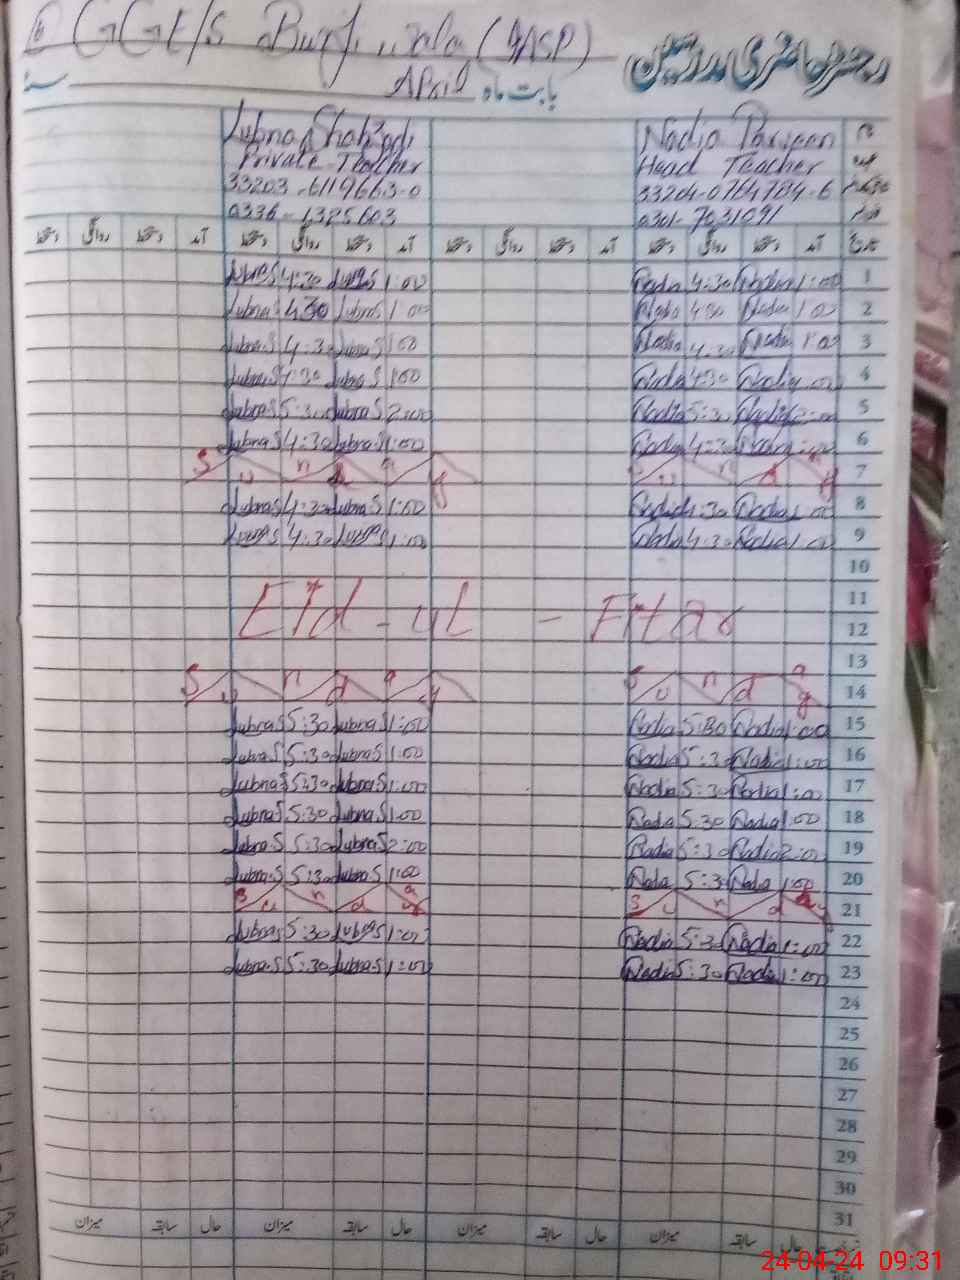 GGE/S
April بابت ماہ
رجسٹر حاضری مدرسین
Nadia Parveen نام
Head Teacher عہدہ
33204-0764784-6
0301-7031091
Lubna Shahzadi
Private Teacher
33203-6119663-0
0336-1325603
تاریخ آمد دستخط روانگی دستخط آمد دستخط روانگی دستخط آمد دستخط روانگی دستخط آمد دستخط روانگی دستخط
Lubna S 4:30 Lubna S 1:00 Nadia 4:30 Nadia 1:00 1
Lubna S 4:30 Lubna S 1:00 Nadia 4:30 Nadia 1:00 2
Lubna S 4:30 Lubna S 1:00 Nadia 4:30 Nadia 1:00 3
Lubna S 4:30 Lubna S 1:00 Nadia 4:30 Nadia 1:00 4
Lubna S 5:30 Lubna S 2:00 Nadia 5:30 Nadia 2:00 5
Lubna S 4:30 Lubna S 1:00 Nadia 4:30 Nadia 1:00 6
Sunday Sunday 7
Lubna S 4:30 Lubna S 1:00 Nadia 4:30 Nadia 1:00 8
Lubna S 4:30 Lubna S 1:00 Nadia 4:30 Nadia 1:00 9
10
11
Eid-ul-Fitar 12
13
Sunday Sunday 14
Lubna S 5:30 Lubna S 1:00 Nadia 5:30 Nadia 1:00 15
Lubna S 5:30 Lubna S 1:00 Nadia 5:30 Nadia 1:00 16
Lubna S 5:30 Lubna S 1:00 Nadia 5:30 Nadia 1:00 17
Lubna S 5:30 Lubna S 1:00 Nadia 5:30 Nadia 1:00 18
Lubna S 5:30 Lubna S 2:00 Nadia 5:30 Nadia 2:00 19
Lubna S 5:30 Lubna S 1:00 Nadia 5:30 Nadia 1:00 20
Sunday Sunday 21
Lubna S 5:30 Lubna S 1:00 Nadia 5:30 Nadia 1:00 22
Lubna S 5:30 Lubna S 1:00 Nadia 5:30 Nadia 1:00 23
24
25
26
27
28
29
30
31
حال سابقہ میزان حال سابقہ میزان حال سابقہ میزان حال سابقہ میزان
24-04-24 09:31